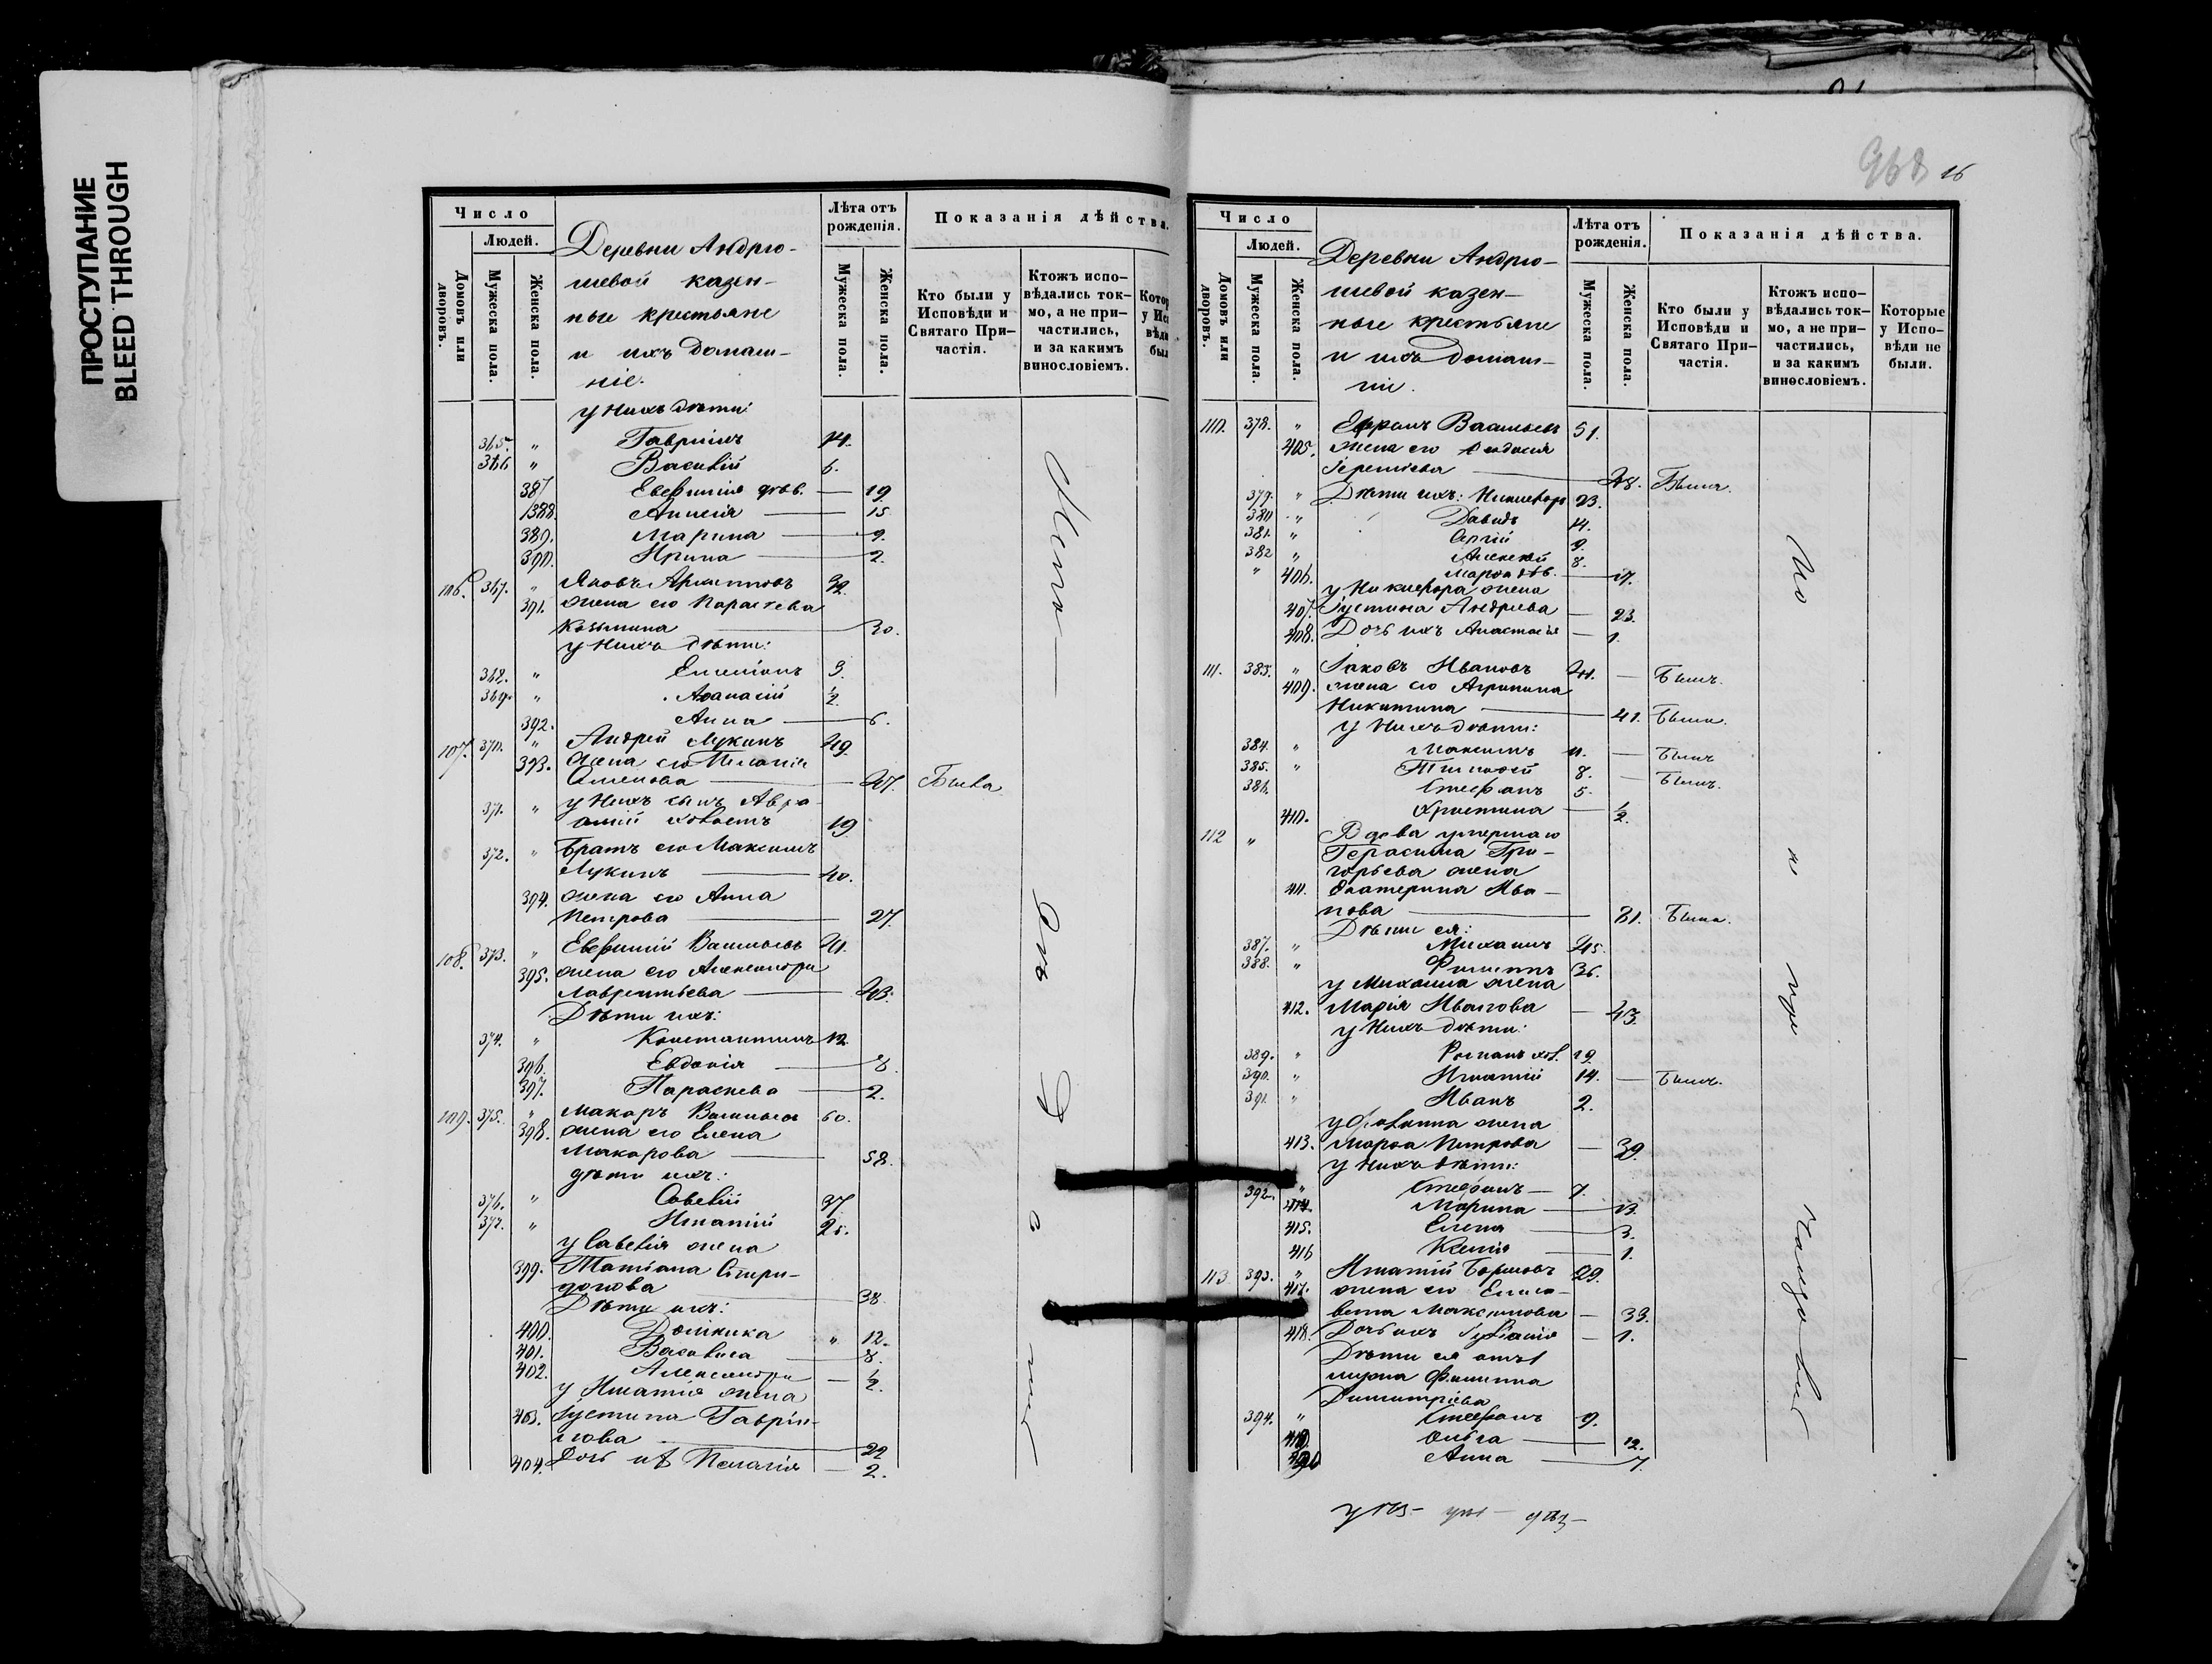 ПРОСТУПАНИЕ
BLEED THROUGH
Число
Людей.
Домовъ или дворовъ.
Мужеска пола.
Женска пола.
Деревни Андрю-
шевой казен-
ные крестьяне
и ихъ домаш-
ніе.
Лѣта отъ рожденія.
Мужеска пола.
Женска пола.
Показанія дѣйства.
Кто были у Исповѣди и Святаго При-частія.
Ктожъ испо-вѣдались ток-мо, а не при-частились, и за какимъ винословіемъ.
у нихъ дѣти:
365. " Гавріилъ 14.
366 " Василій 6.
387 Евфимія дѣв. — 19
388. Анисія — 15
389. Марина — 9.
390. Ирина — 2.
106. 367. " Яковъ Архиповъ 32
391. жена его Параскева
Козьмина — 30.
у нихъ дѣти:
368. " Емеліанъ 3.
369. " Аѳанасій ½
392. Анна — 6.
107. 370. " Андрей Лукинъ 49.
393. жена его Пелагія
— 47. Была
371. " у нихъ сынъ Авра-
амій холостъ 19
372. " Братъ его Максимъ
Лукинъ — 40.
394. жена его Анна
Петрова — 27.
108. 373. " Евфимій Васильевъ 41.
395. жена его Александра
Лаврентьева — 43.
Дѣти ихъ:
374. " Константинъ 12.
396. Евдокія — 8.
397. Параскева — 2.
109. 375. " Макаръ Васильевъ 60.
398. жена его Елена
Макарова — 58.
дѣти ихъ:
376. " Савелій 37.
377. " Игнатій 25.
у Савелія жена
399. Татіана Спири-
донова — 38.
Дѣти ихъ:
400. Домника " 12.
401. Василиса — 8.
402. Александра — ½
у Игнатія жена
403. Іустина Гаврии-
лова — 22
404. Дочь их Пелагія — 2.
16
Число
Людей.
Домовъ или дворовъ.
Мужеска пола.
Женска пола.
Деревни Андрю-
шевой казен-
ные крестьяне
и ихъ домаш-
ніе.
Лѣта отъ рожденія.
Мужеска пола.
Женска пола.
Показанія дѣйства.
Кто были у Исповѣди и Святаго При-частія.
Ктожъ испо-вѣдались ток-мо, а не при-частились, и за какимъ винословіемъ.
Которые у Испо-вѣди не были.
110. 378. " Васильевъ 51.
405. жена его Евдокія
Іереміева — 48. Была.
379. " Дѣти ихъ: Никифоръ 23.
380 " Давидъ 14.
381. " Сергій 9.
382 " Алексѣй 8.
" 406. Марѳа дѣв. — 17.
у Никифора жена
407. Іустина Андреева — 23.
408. Дочь ихъ Анастасія — 1.
111. 383. " Іаковъ Ивановъ 41. — Былъ.
409. жена его Агрипина
Никитина — 41. Была.
у нихъ дѣти:
384. " Максимъ 11. — Былъ
385. " Тимоѳей 8. — Былъ.
386. Стефанъ 5.
410. Христина — ½
112 " Вдова умершаго
Герасима Гри-
горьева жена
411. Екатерина Ива-
нова — 81. Была.
Дѣти ея:
387. " Михаилъ 45.
388. " Филиппъ 36.
у Михаила жена
412. Марія Иванова — 43.
у нихъ дѣти:
389. " Романъ хол. 19.
390. " Игнатій 14. — Былъ.
391. " Иванъ 2.
у Филиппа жена
413. Марѳа Петрова — 39.
у нихъ дѣти:
392. " Стефанъ — 7.
414. Марина — 13.
415. Елена — 3.
416 Ксенія — 1.
113 393. " Игнатій Борисовъ 29.
417. жена его Елиса-
вета Максимова — 33.
418. Дочь ихъ Іуліанія — 1.
Дѣти ея отъ 1
мужа Филиппа
Димитріева
394. " Стефанъ 9.
419. Ольга — 12.
420 Анна — 7.